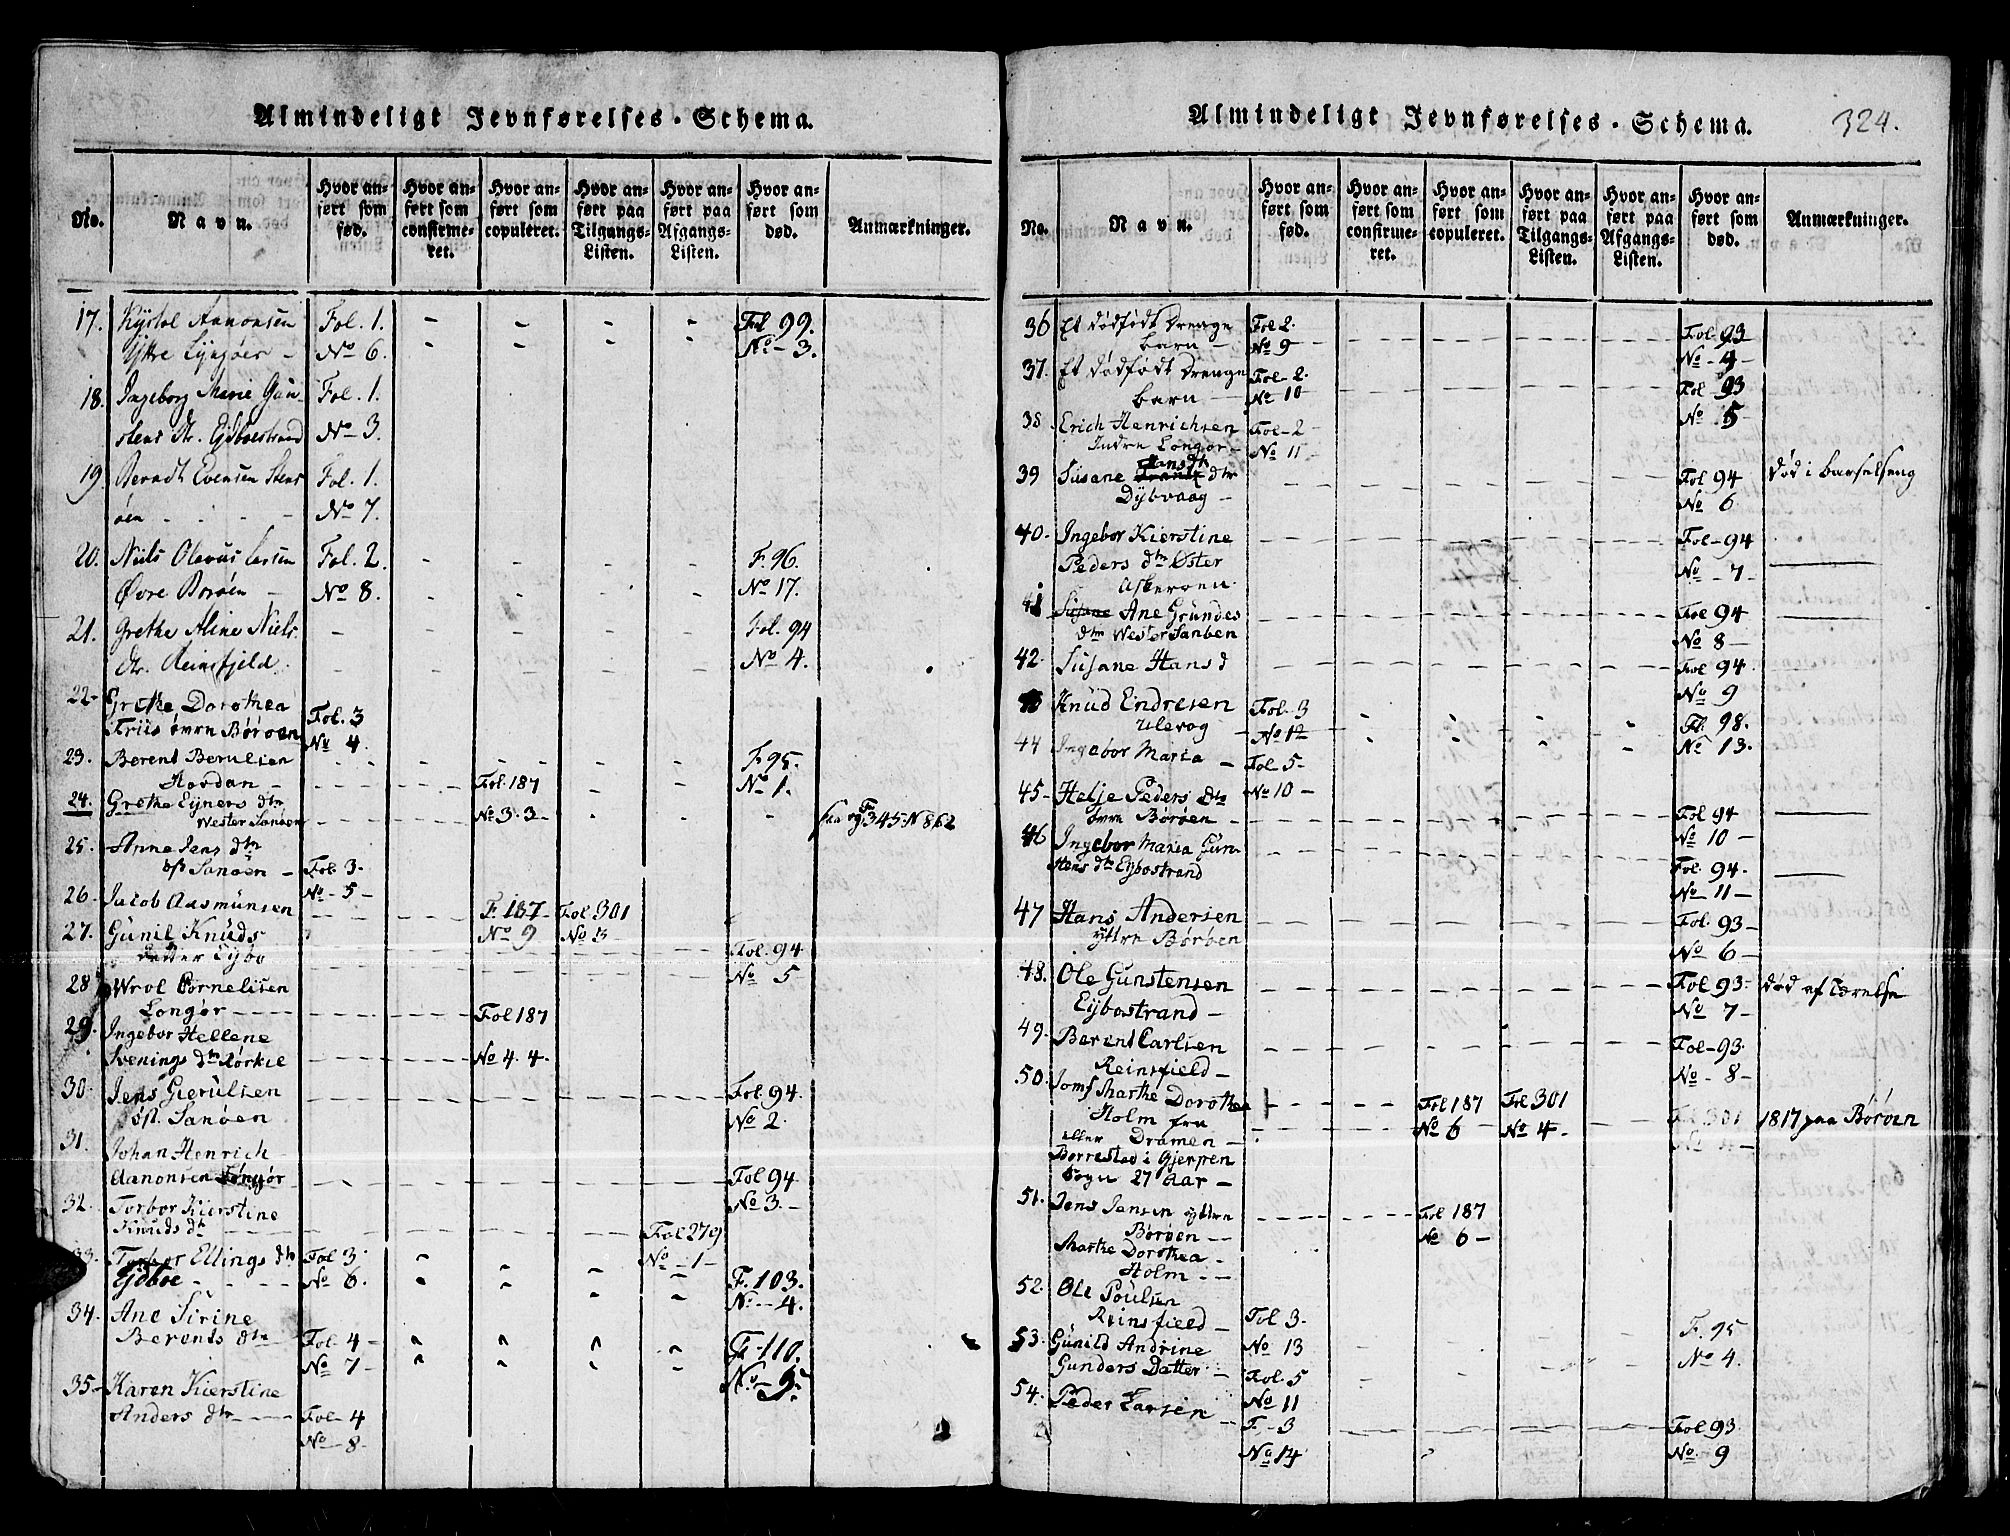 Almindeligt Jevnførelses-Schema.
No.
Navn.
Hvor anført som fød.
Hvor anført som confirmeret.
Hvor anført som copuleret.
Hvor anført paa Tilgangs-Listen.
Hvor anført paa Afgangs-Listen.
Hvor anført som død.
Anmærkninger.
17. Kystol Aanonsen Fol. 1. Fol 99.
Yttre Lyngøer - No 6. No - 3.
18. Ingeborg Marie Gun- Fol. 1.
stens Dr. Ejdboestrand No 3.
19. Berndt Evensen Stens Fol. 1.
øen - - - No 7.
20. Niels Olavus Larsen Fol. 2. F. 96.
Øvre Borøen - No 8. No 17.
21. Grethe Aline Niels Fol. 94
Dr. Reinsfjeld. No 4.
22- Grethe Dorothea
Friis Børøen Fol. 3
No 4.
23. Berent Berulsen F. 95.
Hordan - Fol. 187 No 1.
24. Grethe Ejners dtr
Wester Sanøen No 3. 3 - F 345 N 862
25. Anne Jens dtr
Sanøen - Fol. 3.
No - 5 -
26. Jacob Aasmunsen F. 187 - Fol 301
No 9 No 3 -
27. Gunil Knuds
datter Eybo Fol. 94
No 5
28 Wrol Cornelisen
Longør - - - - Fol 187
29. Ingebor Hellene
Svenings dtr No 4. 4 -
30. Jens Gierulsen Fol. 94
Øst. Sanøen No 2.
31. Johan Henrich
Aanonsen Longør Fol 94
No 3. -
32. Torbor Kierstine
Knuds dr Fol 279
No - 1 -
33. Torbor Ellings dtr Fol 3.
Ejdboe - - - - No 6. F. 103.
No - 4.
34. Ane Sirine
Berents dtr Fol 4 - F - 110.
No 7 - No - 9.
35 - Karen Kierstine
Anders dtr - - - Fol - 4
No - 8 -
Almindeligt Jevnførelses-Schema. 324.
No.
Navn.
Hvor anført som fød.
Hvor anført som confirmeret.
Hvor anført som copuleret.
Hvor anført paa Tilgangs-Listen.
Hvor anført paa Afgangs-Listen.
Hvor anført som død.
Anmærkninger.
36 Et dødfødt Drænge Fol 2. Fol 93
barn - No 9 No - 4 -
37. Et dødfødt Drænge Fol - 2. Fol 93
barn - No 10 No 5
38. Erich Henrichsen Fol - 2
Indre Longør - No 11
39 Susane Hans dtr Fol 94 Død i Barselseng
Dybvaag - No 6
40. Ingebor Kierstine Fol - 94
Peders dtr Øster No - 7 -
Askerøen
41 Susane Ane Gundes Fol 94
dtr Wester Sanøen No 8 -
42. Susane Hans d Fol 94.
No 9
Knud Endresen Fol. 3 Fl. 98.
Ulevog No 12 No 13.
44 Ingebor Maria - Fol 5 -
45 - Helje Peders dtr No 10 -
Børøen - Fol 94
No 10 -
46 Ingebor Maria Gun-
stens dtr Eybostrand Fol. 94 -
No - 11 -
47 Hans Andersen Fol. 93 -
yttre Børøen No 6 -
48. Ole Gunstensen Fol 93 - Død af Tærelse
Eybostrand - No 7 -
49. Berent Carlsen Fol - 93.
Reinsfield - No - 8 -
50. Jomf Marthe Dorothea Fol 187 Fol 301 Fol 301 1817 paa Børøen
Holm fra No 6 No 4 -
eller Dramen -
Borrestad i Gjerpen
Sogn 27 Aar -
51. Jens Jensen yttre Fol 187
Børøen - - No 6 -
Marthe Dorothea -
Holm - -
52. Ole Poulsen
Reinsfield - Fol 3. F. 95
53. Gunild Andrine No 13 No 4.
Gunders Datter - Fol. 5
No 11
54. Peder Larsen - F. - 3 Fol 93
No 14 No 9